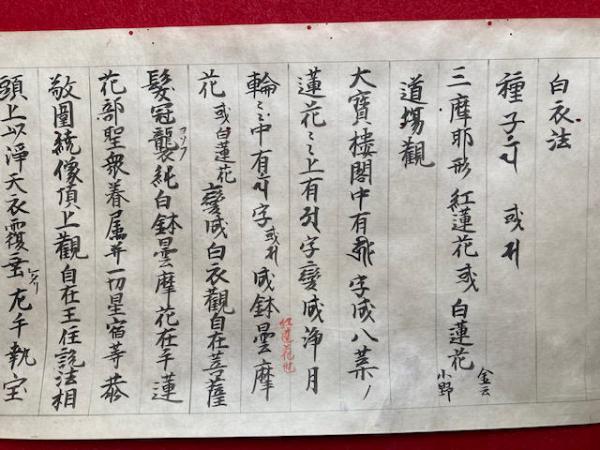 白衣法
種子 或
三摩耶形 紅蓮花或白蓮花 金云 小野
道場觀
大寶樓閣中有 字成八葉ノ
蓮花〻上有 字變成淨月
輪〻中有 字或 成鉢曇摩 紅蓮花也
花 或白蓮花 變成白衣觀自在菩薩
髮冠襲純白鉢曇摩花在手蓮
花部聖衆眷属并一切星宿等恭
敬圍繞像頂上觀自在王住說法相
頭上以淨天衣覆垂左手執宝